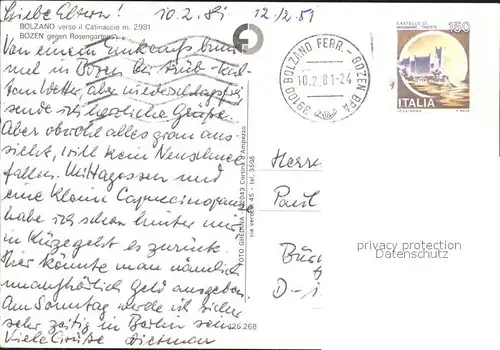 Liebe Eltern! 10.2.81 12./2.81
BOLZANO verso il Catinaccio m. 2981
BOZEN gegen Rosengarten
Von einem Einkaufsbummel
in Bozen bei trüb-kaltem
Wetter, aber niederschlagsfrei,
sende ich herzliche Grüße.
Aber obwohl alles grau aussieht,
will kein Neuschnee
fallen. Mittagessen und
eine kleine Cappuccino
habe ich schon hinter mir
in Kürze geht es zurück.
Hier könnte man nämlich
unaufhörlich Geld ausgeben.
Am Sonntag werde ich sicher
sehr zeitig in Berlin sein
Viele Grüße Dietmar
26.268
FOTO GHEDINA - 32043 Cortina d'Ampezzo
via - tel. 3556
39100 BOLZANO FERR. - BOZEN BFA
10.2.81-24
CASTELLO DI
MIRAMARE - TRIESTE
150
ITALIA
Herrn
Paul
Bür
D-1
PROTECTED copyright
Datenschutz